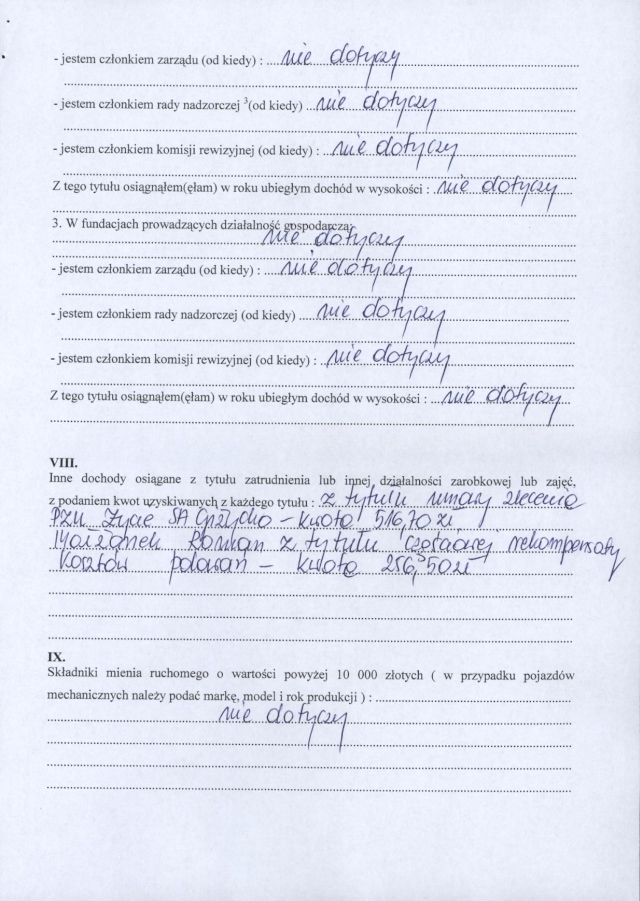 - jestem członkiem zarządu (od kiedy) : ...nie dotyczy
- jestem członkiem rady nadzorczej ³(od kiedy) ...nie dotyczy
- jestem członkiem komisji rewizyjnej (od kiedy) : ...nie dotyczy
Z tego tytułu osiągnąłem(ęłam) w roku ubiegłym dochód w wysokości : ...nie dotyczy
3. W fundacjach prowadzących działalność gospodarczą:
nie dotyczy
- jestem członkiem zarządu (od kiedy) : ...nie dotyczy
- jestem członkiem rady nadzorczej (od kiedy) ...nie dotyczy
- jestem członkiem komisji rewizyjnej (od kiedy) : ...nie dotyczy
Z tego tytułu osiągnąłem(ęłam) w roku ubiegłym dochód w wysokości : ...nie dotyczy
VIII.
Inne dochody osiągane z tytułu zatrudnienia lub innej działalności zarobkowej lub zajęć,
z podaniem kwot uzyskiwanych z każdego tytułu : z tytułu umowy zlecenia
PZU Życie SA Giżycko – kwota 516,70 zł
Małżonek Roman z tytułu częściowej rekompensaty
kosztów polowań – kwota 256,50 zł
IX.
Składniki mienia ruchomego o wartości powyżej 10 000 złotych ( w przypadku pojazdów
mechanicznych należy podać markę, model i rok produkcji ) :
nie dotyczy